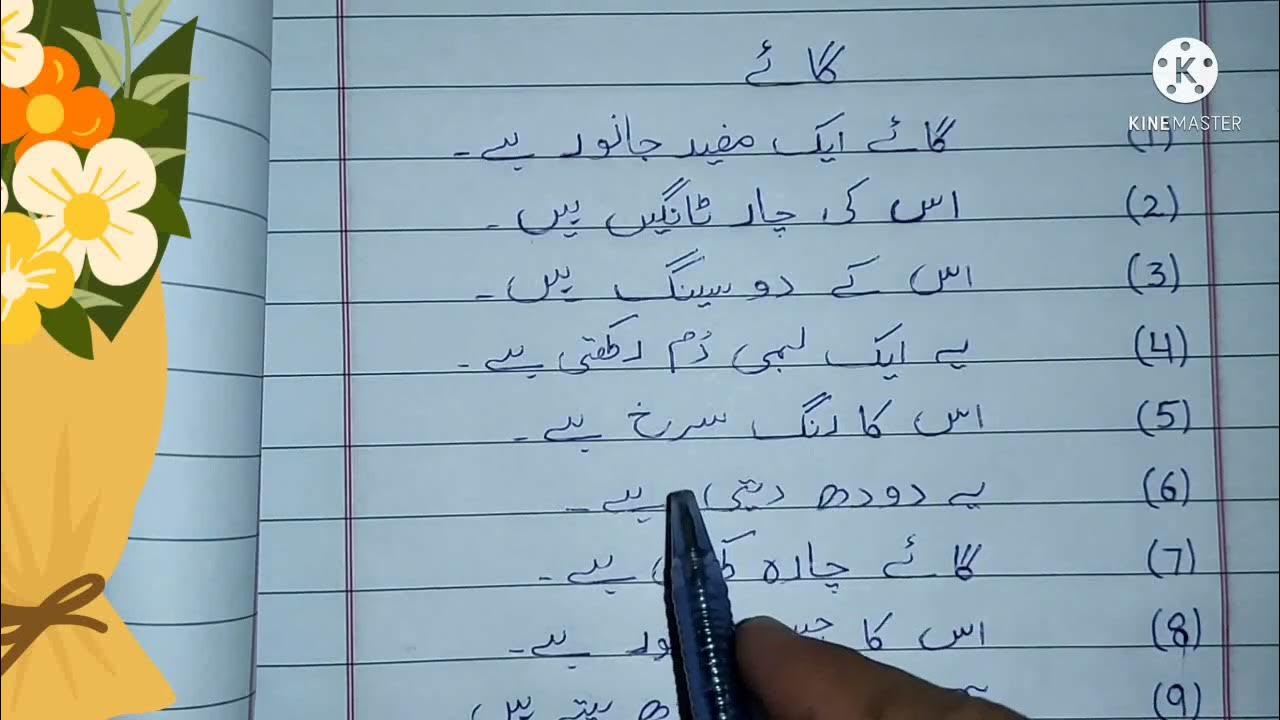 گائے
(1) گائے ایک مفید جانور ہے۔
(2) اس کی چار ٹانگیں ہیں۔
(3) اس کے دو سینگ ہیں۔
(4) یہ ایک لمبی دُم رکھتی ہے۔
(5) اس کا رنگ سرخ ہے۔
(6) یہ دودھ دیتی ہے۔
(7) گائے چارہ ہے۔
(8) اس کا ہے۔
(9) پیتے ہیں
KINEMASTER